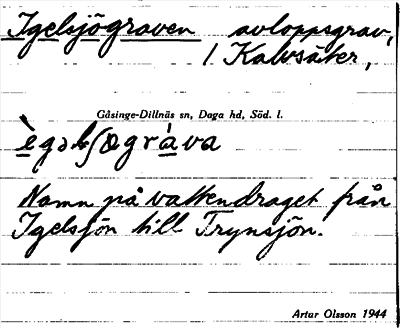 Igelsjögraven avloppsgrav,
l. Kalvsäter,
Gåsinge-Dillnäs sn, Daga hd, Söd. l.
Namn på vattendraget från
Igelsjön till Trynsjön.
Artur Olsson 1944